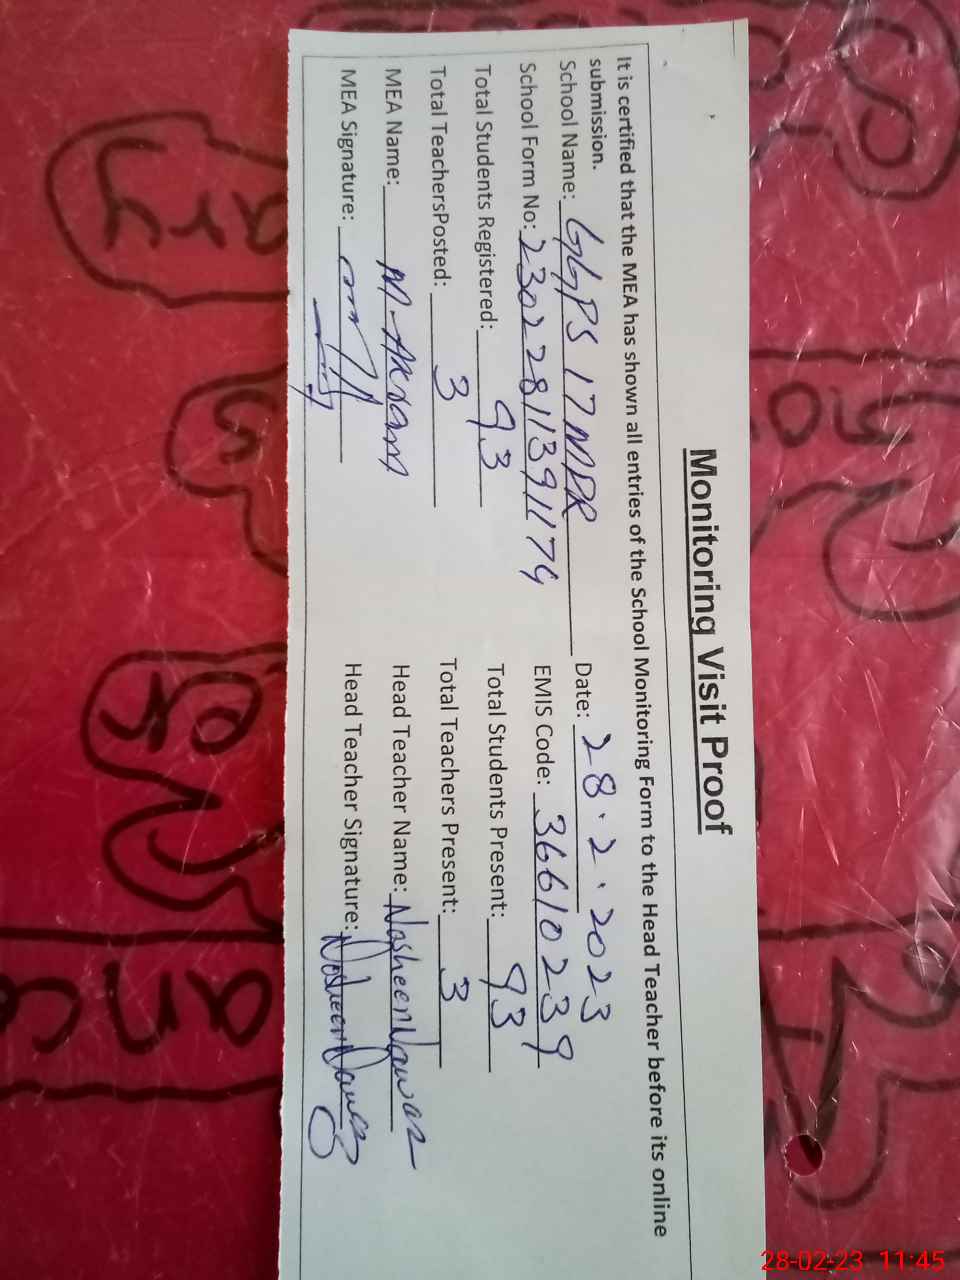 Monitoring Visit Proof
It is certified that the MEA has shown all entries of the School Monitoring Form to the Head Teacher before its online
submission.
School Name: GGPS 17 MDR Date: 28.2.2023
School Form No: 230228113911174 EMIS Code: 36610239
Total Students Registered: 93 Total Students Present: 93
Total TeachersPosted: 3 Total Teachers Present: 3
MEA Name: M. Akram Head Teacher Name: Nosheen Nawaz
MEA Signature: Head Teacher Signature: Nosheen Nawaz
28-02-23 11:45